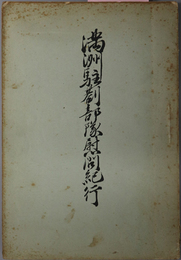 満洲駐劄部隊慰問紀行